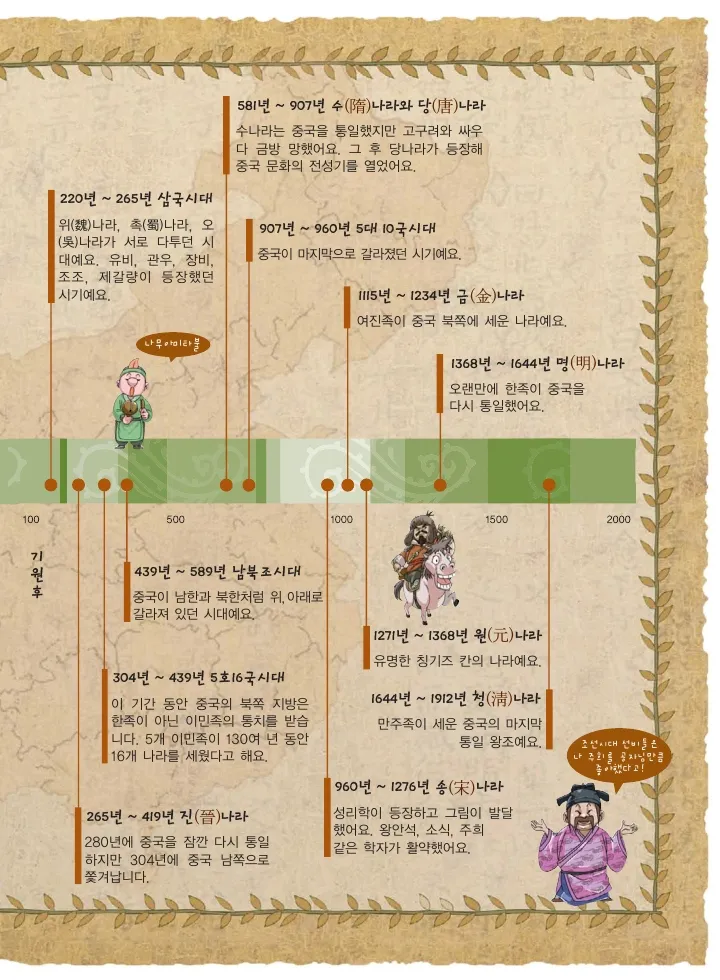 581년 ~ 907년 수(隋)나라와 당(唐)나라
수나라는 중국을 통일했지만 고구려와 싸우
다 금방 망했어요. 그 후 당나라가 등장해
중국 문화의 전성기를 열었어요.
220년 ~ 265년 삼국시대
위(魏)나라, 촉(蜀)나라, 오
(吳)나라가 서로 다투던 시
대예요. 유비, 관우, 장비,
조조, 제갈량이 등장했던
시기예요.
907년 ~ 960년 5대 10국시대
중국이 마지막으로 갈라졌던 시기예요.
1115년 ~ 1234년 금(金)나라
여진족이 중국 북쪽에 세운 나라예요.
나무아미타불
1368년 ~ 1644년 명(明)나라
오랜만에 한족이 중국을
다시 통일했어요.
100
500
1000
1500
2000
기
원
후
439년 ~ 589년 남북조시대
중국이 남한과 북한처럼 위, 아래로
갈라져 있던 시대예요.
1271년 ~ 1368년 원(元)나라
유명한 칭기즈 칸의 나라예요.
304년 ~ 439년 5호16국시대
이 기간 동안 중국의 북쪽 지방은
한족이 아닌 이민족의 통치를 받습
니다. 5개 이민족이 130여 년 동안
16개 나라를 세웠다고 해요.
1644년 ~ 1912년 청(淸)나라
만주족이 세운 중국의 마지막
통일 왕조예요.
조선시대 선비들은
나 주희를 공자님만큼
좋아했다고!
960년 ~ 1276년 송(宋)나라
성리학이 등장하고 그림이 발달
했어요. 왕안석, 소식, 주희
같은 학자가 활약했어요.
265년 ~ 419년 진(晉)나라
280년에 중국을 잠깐 다시 통일
하지만 304년에 중국 남쪽으로
쫓겨납니다.